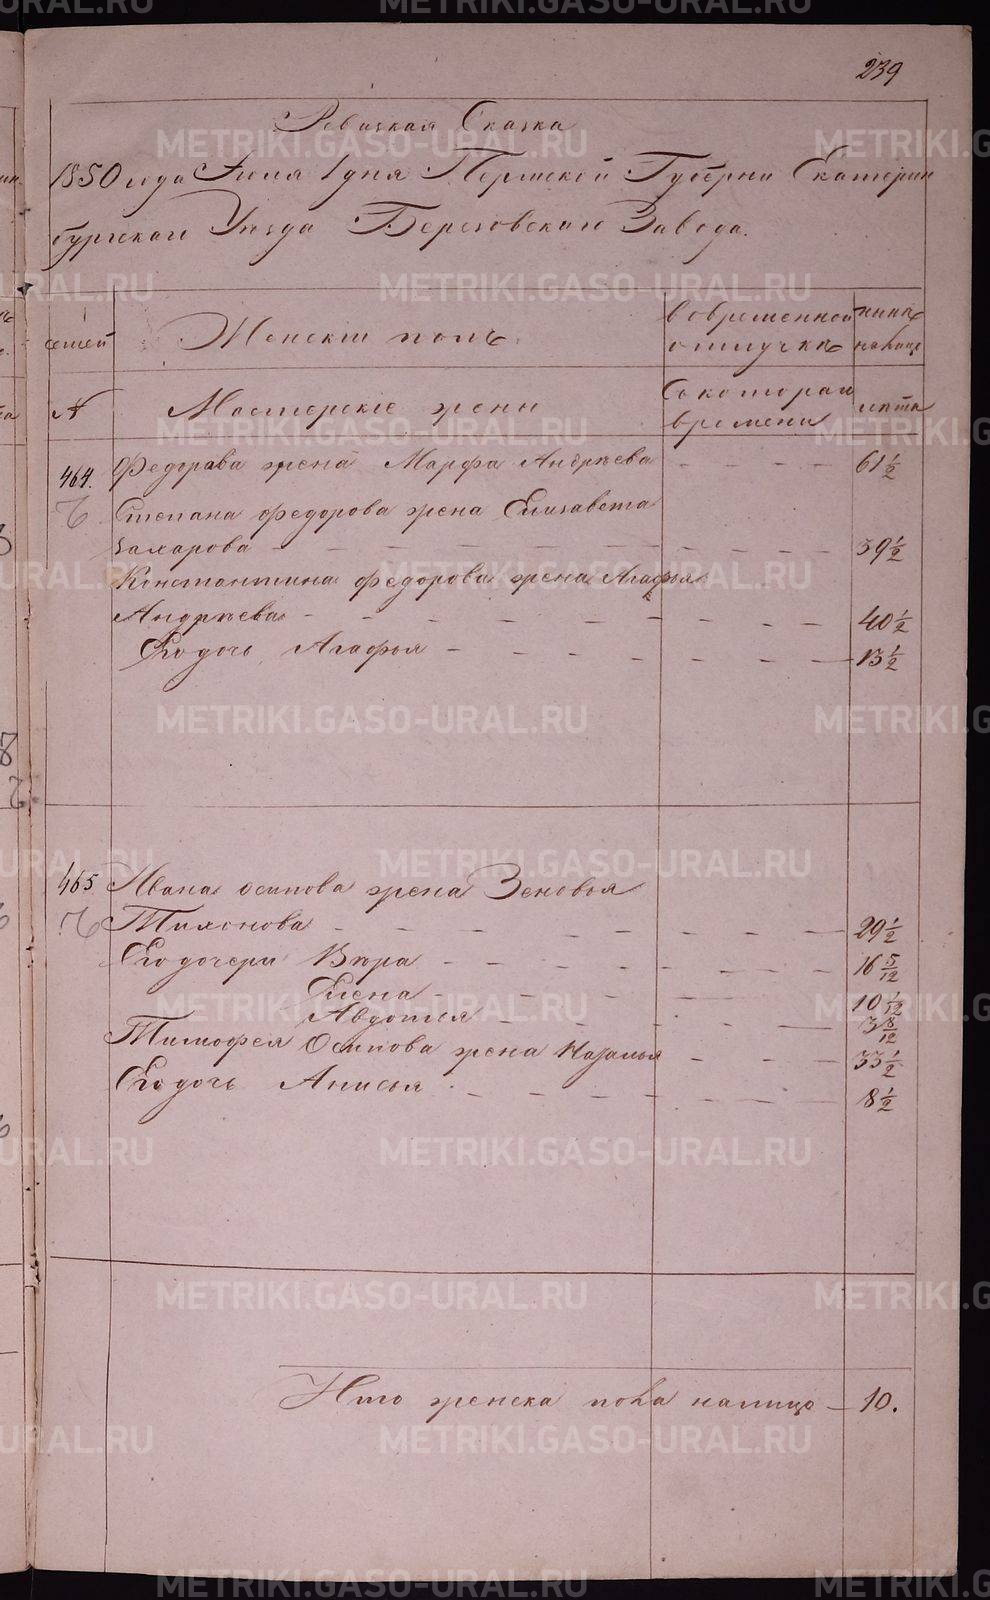 239
Ревизская Сказка
1850 года Июля 1 дня Пермской Губерни Екатерин
бургскаго Уѣзда Березовскаго Завода.
семей
Женскiй полъ
во временной
отлучкѣ
нынѣ
на лицо
№
Мастерскiе жены
Съ котораго
времени
лѣта
464. Федорава жена Марфа Андрѣева - - - - 61 1/2
Степана Федорова жена Елизавета
Захарова - - - - - - - - 39 1/2
Константина Федорова жена Агафья
Андрѣева - - - - - - - - 40 1/2
Его дочь Агафья - - - - - - 13 1/2
465 Ивана Осипова жена Зеновья
Тихонова - - - - - - - - 29 1/2
Его дочери Вѣра - - - - - - - 16 5/12
Елена - - - - - - 10 1/12
Авдотья - - - - - - 3 8/12
Тимофея Осипова жена Наталья - - - 33 1/2
Его дочь Анисья - - - - - - - 8 1/2
Итого женска пола налицо — 10.
METRIKI.GASO-URAL.RU